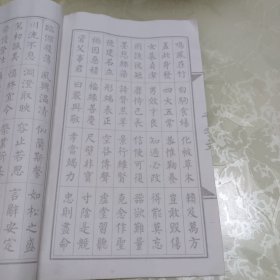 鳴鳳在竹 白駒食場 化被草木 賴及萬方
蓋此身髮 四大五常 恭惟鞠養 豈敢毀傷
女慕貞潔 男效才良 知過必改 得能莫忘
罔談彼短 靡恃己長 信使可覆 器欲難量
墨悲絲染 詩讚羔羊 景行維賢 克念作聖
德建名立 形端表正 空谷傳聲 虛堂習聽
禍因惡積 福緣善慶 尺璧非寶 寸陰是競
資父事君 曰嚴與敬 孝當竭力 忠則盡命
臨深履薄 夙興溫凊 似蘭斯馨 如松之盛
川流不息 淵澄取映 容止若思 言辭安定
篤初誠美 慎終宜令 榮業所基